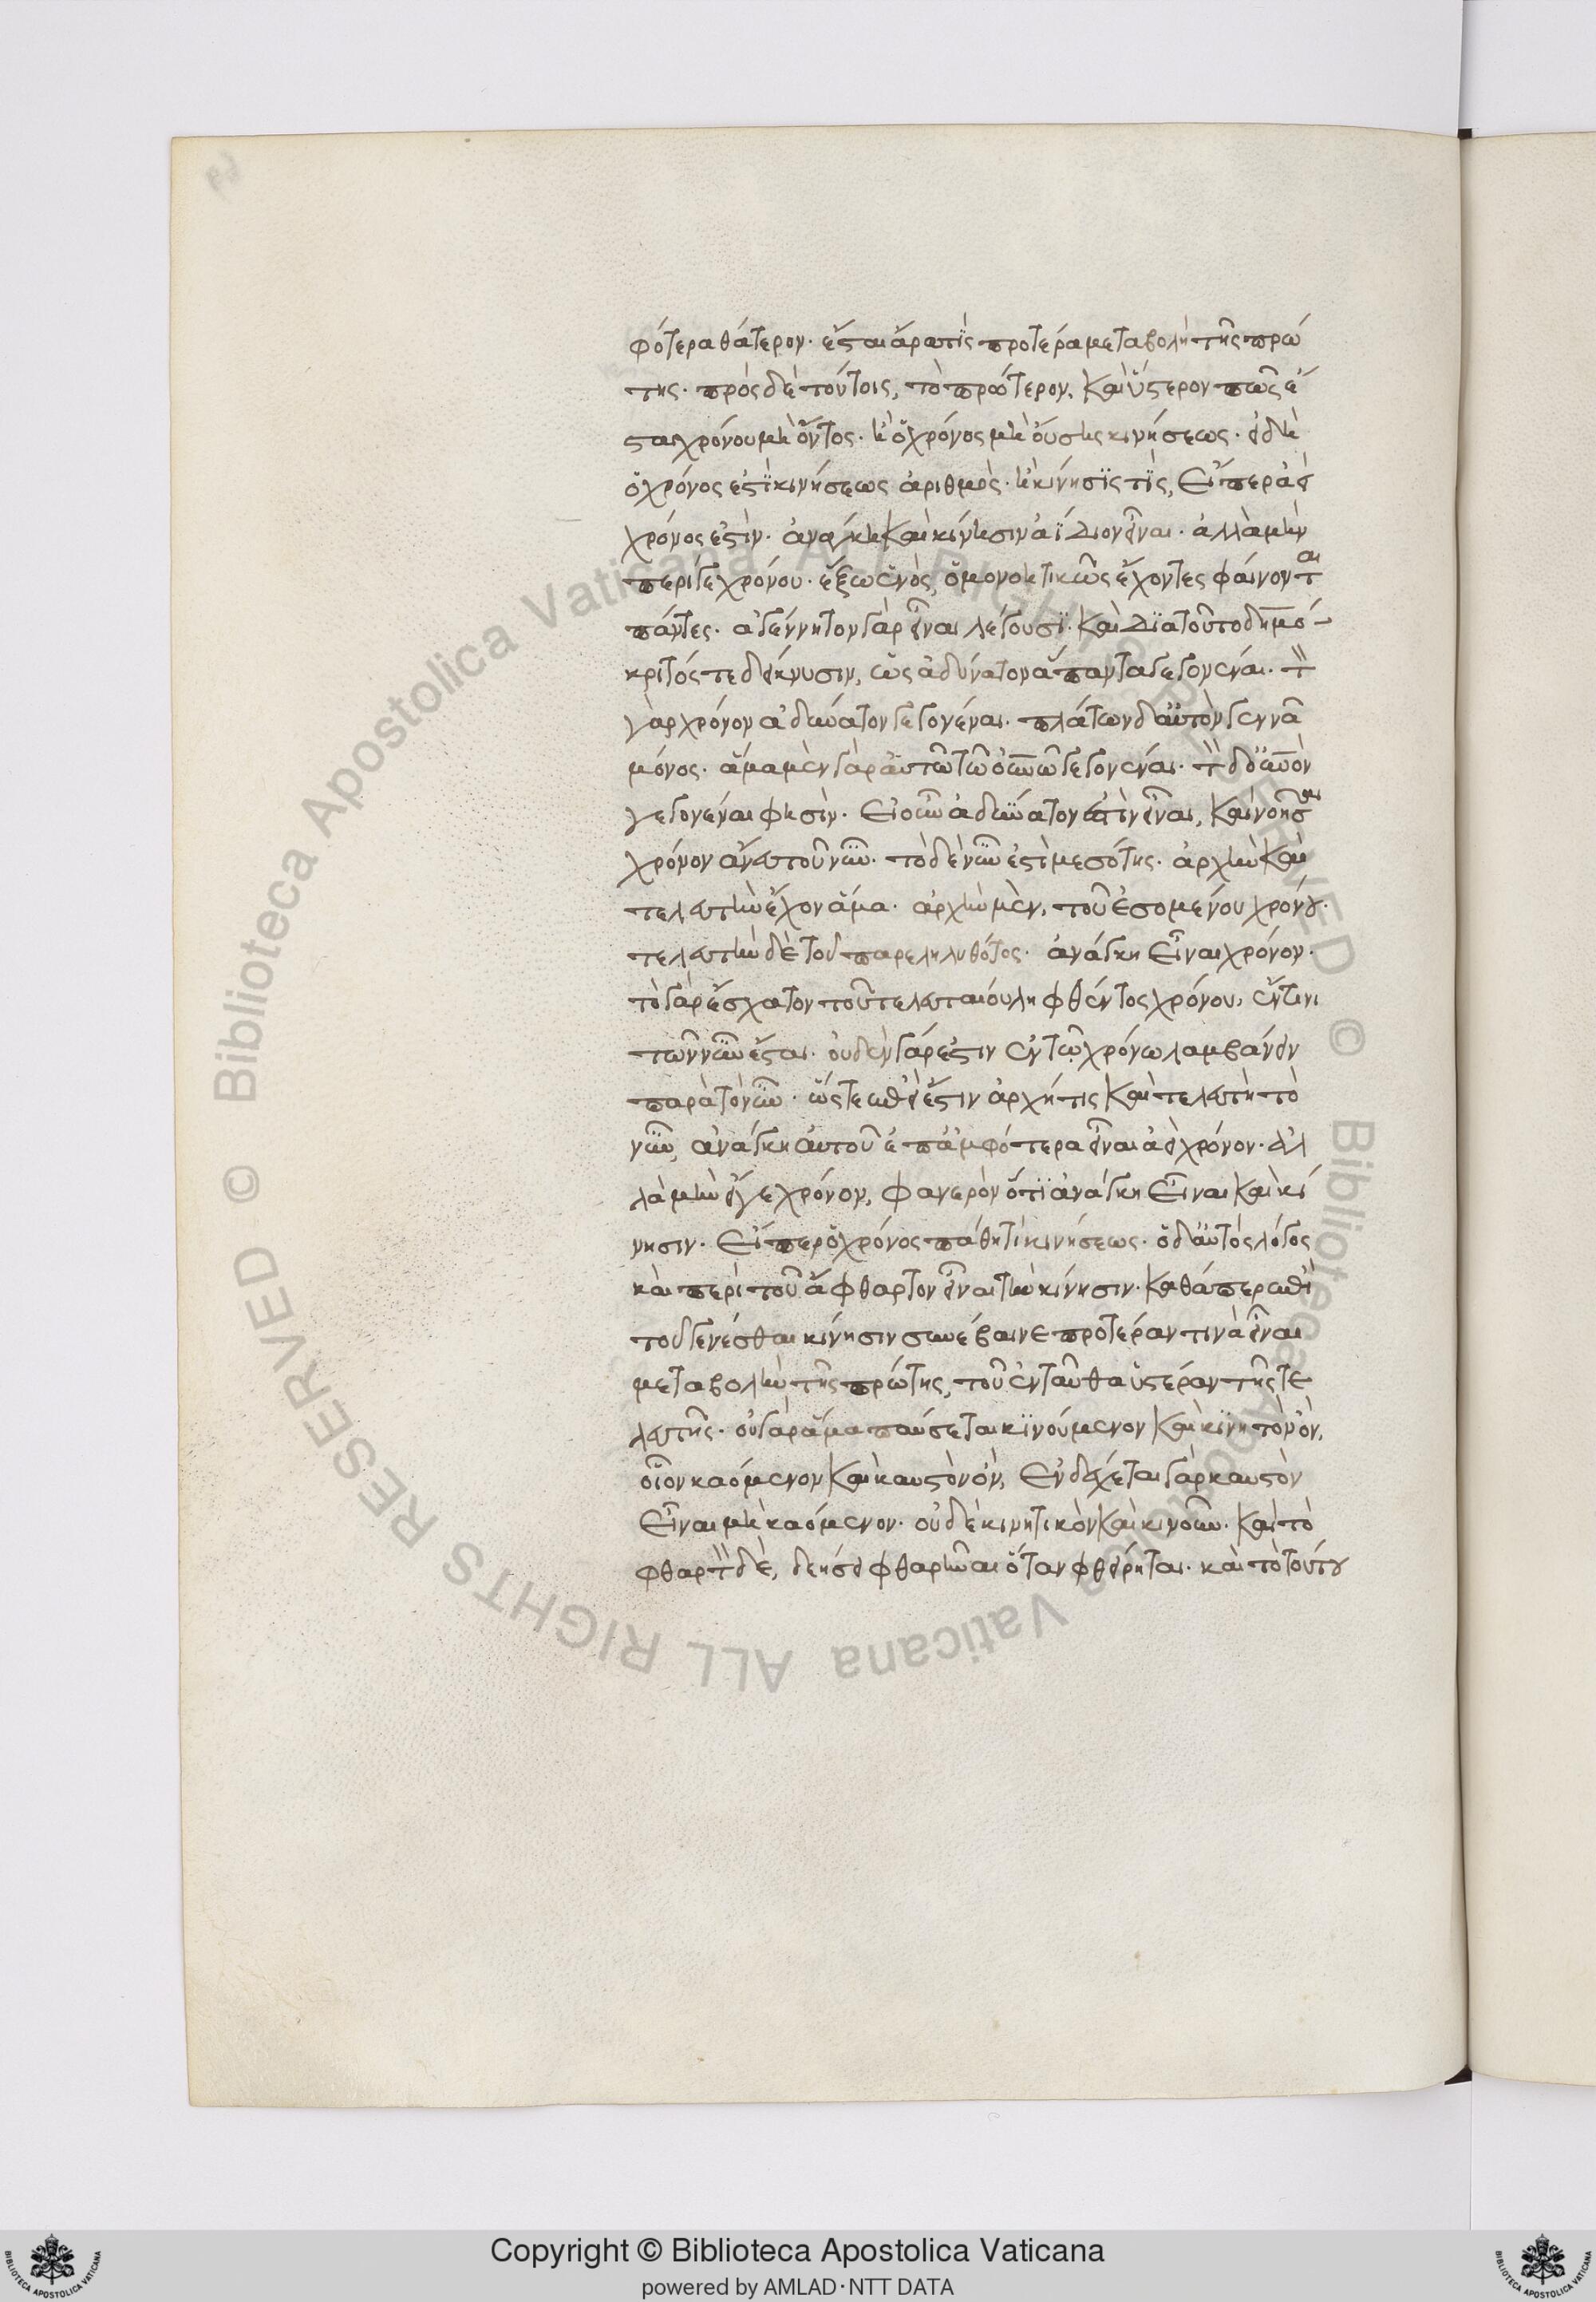 φότερα θάτερον· ἔσται ἄρα τῒς προτέρα μεταβολὴ τῆς πρώ
της· πρὸς δὲ τούτοις, τὸ πρότερον, καὶ ὕστερον πῶς ἔ
σται χρόνου μὴ ὄντος· ἢ ὁ χρόνος μὴ οὔσης κινήσεως· εἰ δὴ
ὁ χρόνος ἐστῒ κινήσεως ἀριθμὸς· ἢ κίνησΐς τῒς, Εἴπερ ἀεὶ
χρόνος ἐστὶν· ἀνάγκη καὶ κίνησιν ἀΐδιον εἶναι· ἀλλὰ μὴν
περί γε χρόνου· ἔξω ἑνὸς, ὁμονοητικῶς ἔχοντες φαίνονται
πάντες· ἀγέννητον γὰρ εἶναι λέγουσϊ· καὶ Διὰ τοῦτο δημό
κριτός τε δείκνυσιν, ὡς ἀδύνατον ἅπαντα γεγονέναι· τὸ
γὰρ χρόνον ἀδύνατον γεγονέναι· πλάτων δ' αὐτὸν γεννᾶ
μόνος· ἅμα μὲν γὰρ αὐτῶ τῶ οὐνῶ γεγονέναι· τὸ δ' οὐνὸν
γεγονέναι φησὶν· Εἰ οὖν ἀδύνατον ἐστὶν εἶναι, καὶ νοῆσαι
χρόνον ἄνευ τοῦ νῦν· τὸ δὲ νῦν ἐστὶ μεσότης· ἀρχὴν καὶ
τελευτὴν ἔχον ἅμα· ἀρχὴν μὲν, τοῦ ἐσομένου χρόνου·
τελευτὴν δὲ τοῦ παρεληλυθότος· ἀνάγκη Εἶναι χρόνον·
τὸ γὰρ ἔσχατον τοῦ τελευταίου ληφθέντος χρόνου, ἔν τινι
τῶν νῦν ἔσται· οὐδὲν γάρ ἐστιν ἐν τῶ χρόνω λαμβάνειν
παρὰ τὸ νῦν· ὥστε ἐπεὶ ἔστιν ἀρχή τις καὶ τελευτὴ τὸ
νῦν, ἀνάγκη αὐτοῦ ἐπ' ἀμφότερα εἶναι ἀεὶ χρόνον· ἀλ
λὰ μὴν εἴ γε χρόνον, φανερὸν ὅτϊ ἀνάγκη Εἶναι καὶ κί
νησιν· Εἴπερ ὁ χρόνος πάθη τι κινήσεως· ὁ δ' αὐτὸς λόγος
καὶ περὶ τοῦ ἄφθαρτον εἶναι τὴν κίνησιν· καθάπερ ἐπὶ
τοῦ γενέσθαι κίνησιν συνέβαινε προτέραν τινὰ εἶναι
μεταβολὴν τῆς πρώτης, τοῦ ἐνταῦθα ὑστέραν τῆς τε
λευτῆς· οὐ γὰρ ἅμα παύσεται κϊνούμενον καὶ κϊνητὸν ὂν,
οἷον καόμενον καὶ καυστὸν ὂν, Ἐνδέχεται γὰρ καυστὸν
Εἶναι μὴ καόμενον· οὐδὲ κινητικὸν καὶ κινοῦν· καὶ τὸ
φθαρτὸ δὲ, δεήσει φθαρῆναι ὅταν φθείρηται· καὶ τὸ τούτου
Copyright © Biblioteca Apostolica Vaticana
powered by AMLAD·NTT DATA